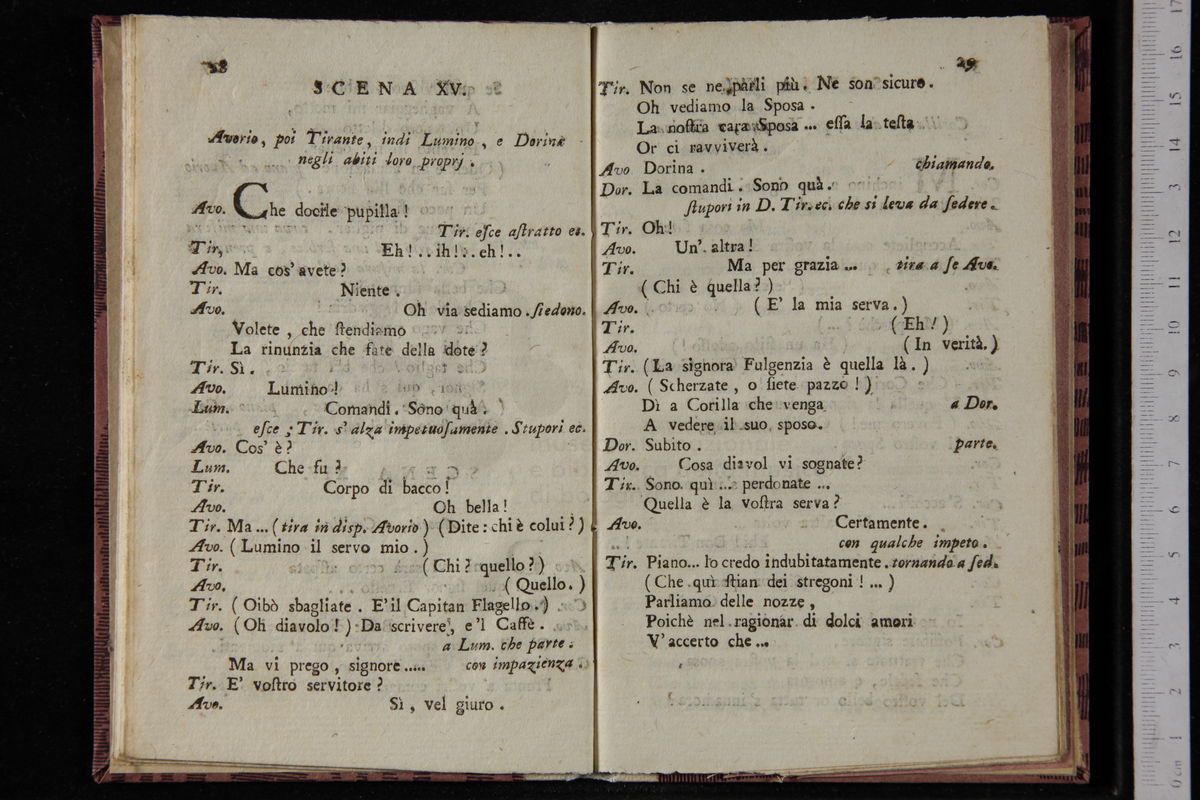 28
SCENA XV.
Avorio, poi Tirante, indi Lumino, e Dorina
negli abiti loro proprj.
Avo. Che docile pupilla!
Tir. esce astratto ec.
Tir. Eh!..ih!..eh!..
Avo. Ma cos' avete?
Tir. Niente.
Avo. Oh via sediamo. siedono.
Volete, che stendiamo
La rinunzia che fate della dote?
Tir. Sì.
Avo. Lumino!
Lum. Comandi. Sono quà.
esce; Tir. s' alza impetuosamente. Stupori ec.
Avo. Cos' è?
Lum. Che fu?
Tir. Corpo di bacco!
Avo. Oh bella!
Tir. Ma... (tira in disp. Avorio) (Dite: chi è colui?)
Avo. (Lumino il servo mio.)
Tir. (Chi? quello?)
Avo. (Quello.)
Tir. (Oibò sbagliate. E' il Capitan Flagello.)
Avo. (Oh diavolo!) Da scrivere, e'l Caffè.
a Lum. che parte.
Ma vi prego, signore..... con impazienza.
Tir. E' vostro servitore?
Avo. Sì, vel giuro.
29
Tir. Non se ne parli più. Ne son sicuro.
Oh vediamo la Sposa.
La nostra cara Sposa... essa la testa
Or ci ravviverà.
Avo Dorina. chiamando.
Dor. La comandi. Sono quà.
stupori in D. Tir. ec. che si leva da sedere.
Tir. Oh!
Avo. Un' altra!
Tir. Ma per grazia... tira a se Avo.
(Chi è quella?)
Avo. (E' la mia serva.)
Tir. (Eh!)
Avo. (In verità.)
Tir. (La signora Fulgenzia è quella là.)
Avo. (Scherzate, o siete pazzo!)
Dì a Corilla che venga a Dor.
A vedere il suo sposo.
Dor. Subito. parte.
Avo. Cosa diavol vi sognate?
Tir. Sono quì... perdonate...
Quella è la vostra serva?
Avo. Certamente.
con qualche impeto.
Tir. Piano... lo credo indubitatamente. tornando a sed.
(Che quì stian dei stregoni!...)
Parliamo delle nozze,
Poichè nel ragionar di dolci amori
V' accerto che...